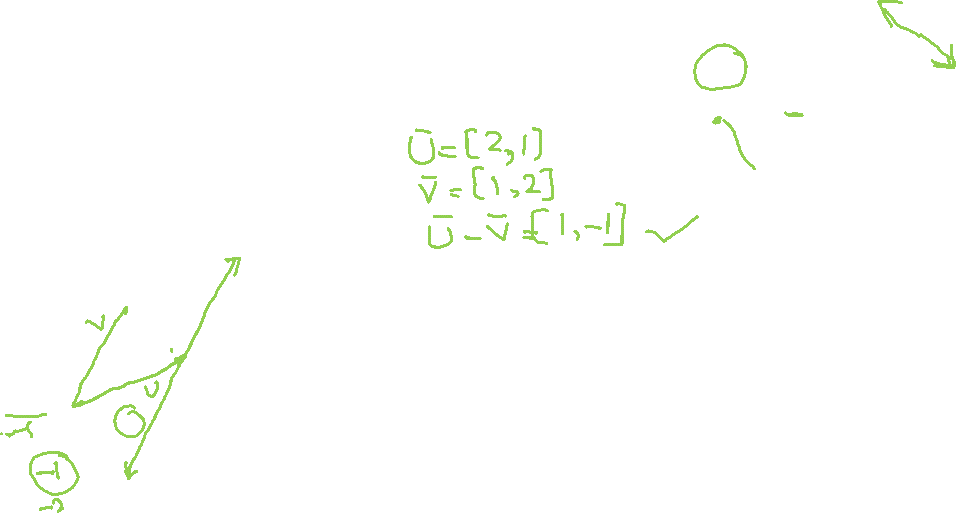 Ū=[2,1]
v̄=[1,2]
Ū-v̄=[1,-1] ✓
v
u